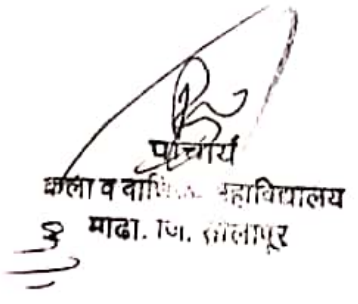 प्राचार्य
कला व महाविद्यालय
माढा. जि. सोलापूर